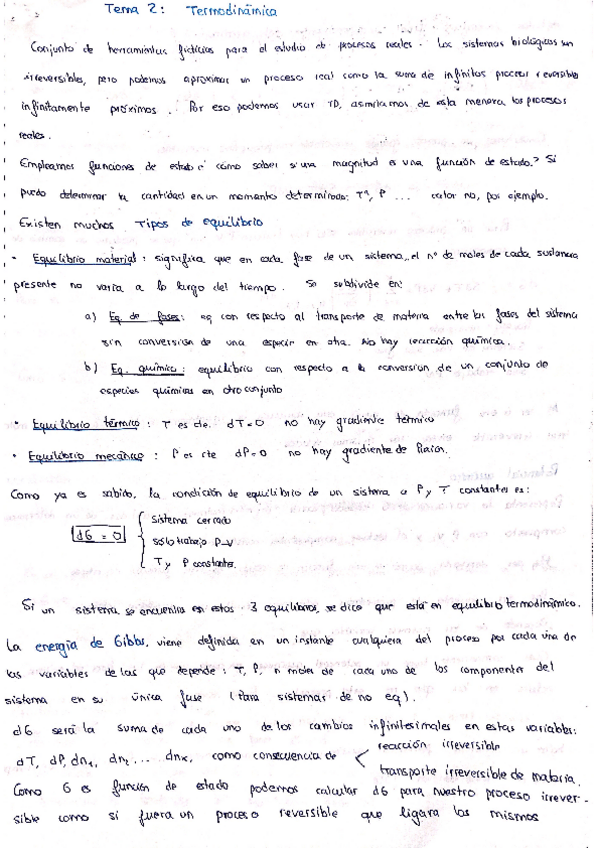 Tema 2: Termodinámica
Conjunto de herramientas ficticias para el estudio de procesos reales. Los sistemas biológicos son
irreversibles, pero podemos aproximar un proceso real como la suma de infinitos procesos reversibles
infinitamente próximos. Por eso podemos usar TD, asimilamos de esta manera los procesos
reales.
Empleamos funciones de estado ¿cómo saber si una magnitud es una función de estado? Si
puedo determinar la cantidad en un momento determinado: Tª, P ... calor no, por ejemplo.
Existen muchos Tipos de equilibrio
· Equilibrio material: significa que en cada fase de un sistema, el nº de moles de cada sustancia
presente no varía a lo largo del tiempo. Se subdivide en:
a) Eq. de fases: eq con respecto al transporte de materia entre las fases del sistema
sin conversión de una especie en otra. No hay reacción química.
b) Eq. químico: equilibrio con respecto a la conversión de un conjunto de
especies químicas en otro conjunto
· Equilibrio térmico: T es cte. dT=0 no hay gradiente térmico
· Equilibrio mecánico: P es cte dP=0 no hay gradiente de Presión.
Como ya es sabido, la condición de equilibrio de un sistema a P y T constantes es:
dG = 0
sistema cerrado
sólo trabajo P-V
T y P constantes.
Si un sistema se encuentra en estos 3 equilibrios, se dice que está en equilibrio termodinámico.
La energía de Gibbs, viene definida en un instante cualquiera del proceso por cada una de
las variables de las que depende: T, P, n moles de cada uno de los componentes del
sistema en su única fase (Para sistemas de no eq).
dG será la suma de cada uno de los cambios infinitesimales en estas variables:
dT, dP, dn₁, dn₂ ... dnₖ, como consecuencia de
reacción irreversible
transporte irreversible de materia.
Como G es función de estado podemos calcular dG para nuestro proceso irrever-
sible como si fuera un proceso reversible que ligara los mismos